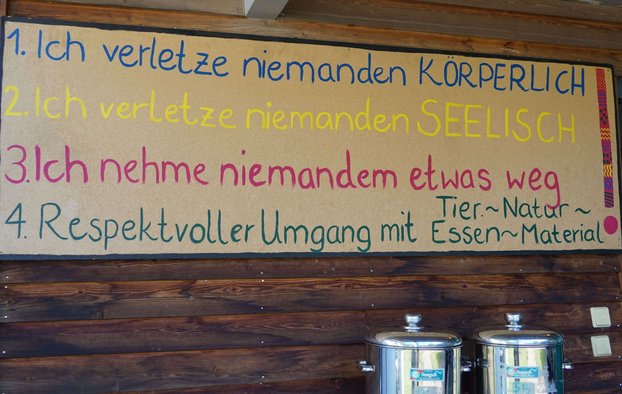 1. Ich verletze niemanden KÖRPERLICH
2. Ich verletze niemanden SEELISCH
3. Ich nehme niemandem etwas weg
4. Respektvoller Umgang mit Tier~Natur~
Essen~Material